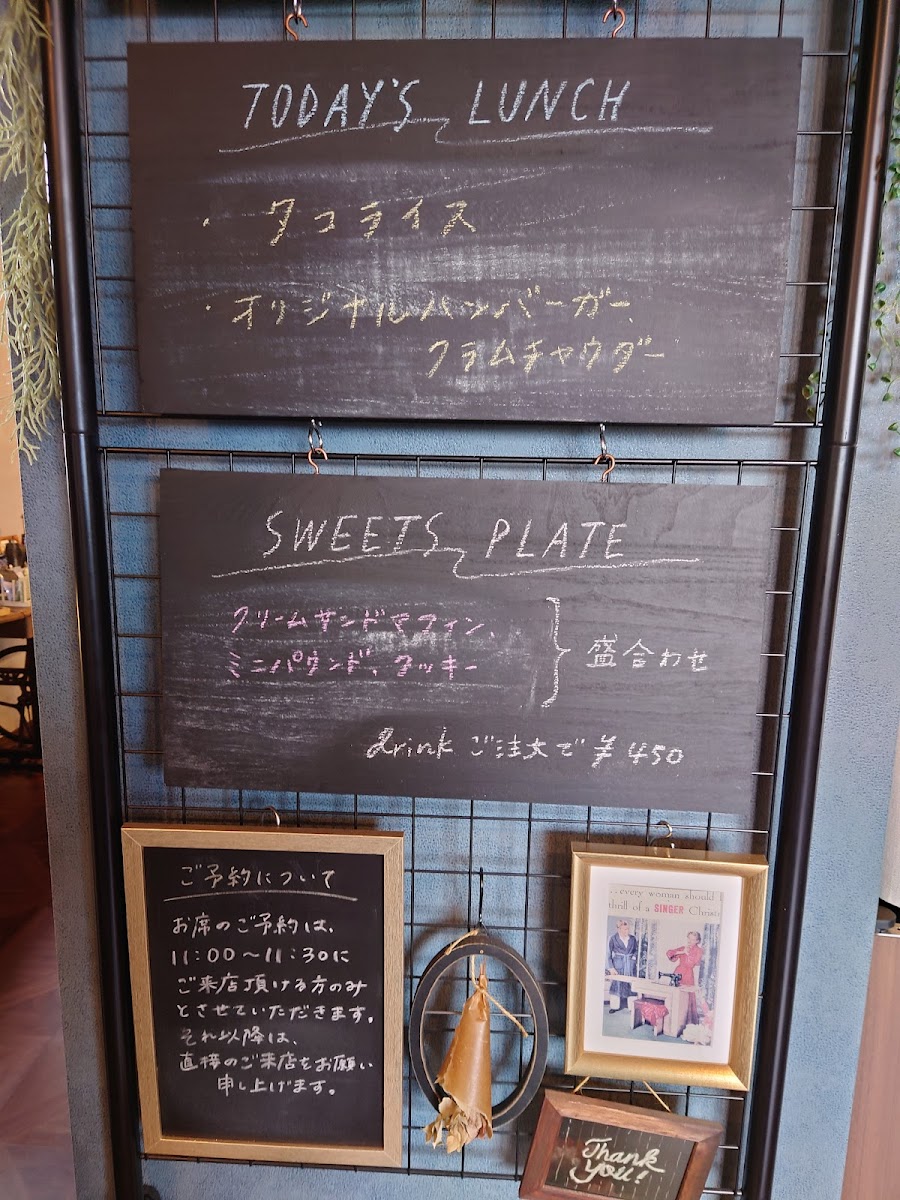 TODAY'S LUNCH
・ タコライス
・オリジナルハンバーガー、
クラムチャウダー
SWEETS PLATE
クリームサンドマフィン、
ミニパウンド、クッキー
盛合わせ
drink ご注文で ¥450
ご予約について
お席のご予約は、
11:00〜11:30に
ご来店頂ける方のみ
とさせていただきます。
それ以降は、
直接のご来店をお願い
申し上げます。
...every woman should
thrill of a SINGER Christ
Thank
you!